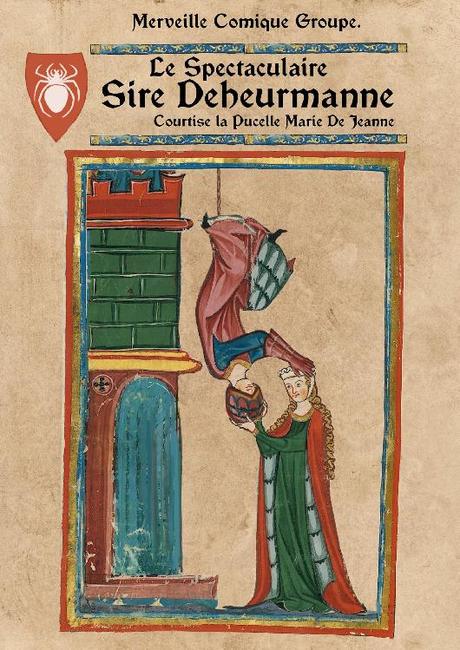 Merveille Comique Groupe.
Le Spectaculaire
Sire Deheurmanne
Courtise la Pucelle Marie De Jeanne